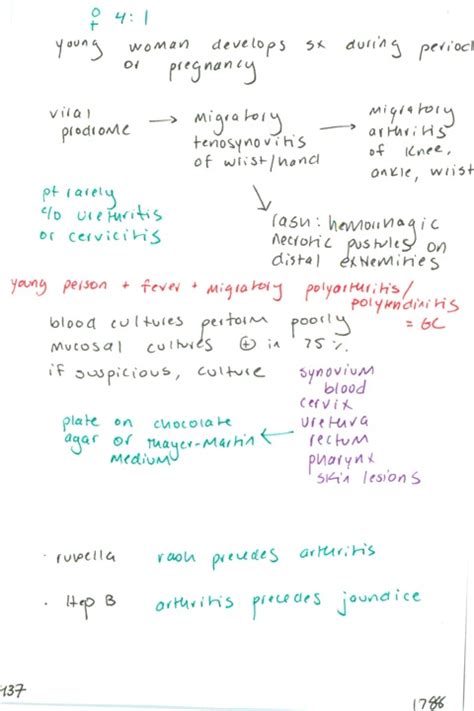 ♀ 4:1
young woman develops sx during period
or pregnancy
viral
prodrome → migratory
tenosynovitis
of wrist/hand → migratory
arthritis
of knee,
ankle, wrist
pt rarely
c/o urethritis
or cervicitis
rash: hemorrhagic
necrotic pustules on
distal extremities
young person + fever + migratory polyarthritis/
polytendinitis
= GC
blood cultures perform poorly
mucosal cultures ⊕ in 75%
if suspicious, culture synovium
blood
cervix
urethra
rectum
pharynx
skin lesions
plate on chocolate
agar or Thayer-Martin
medium
· rubella rash precedes arthritis
· Hep B arthritis precedes jaundice
437
1786